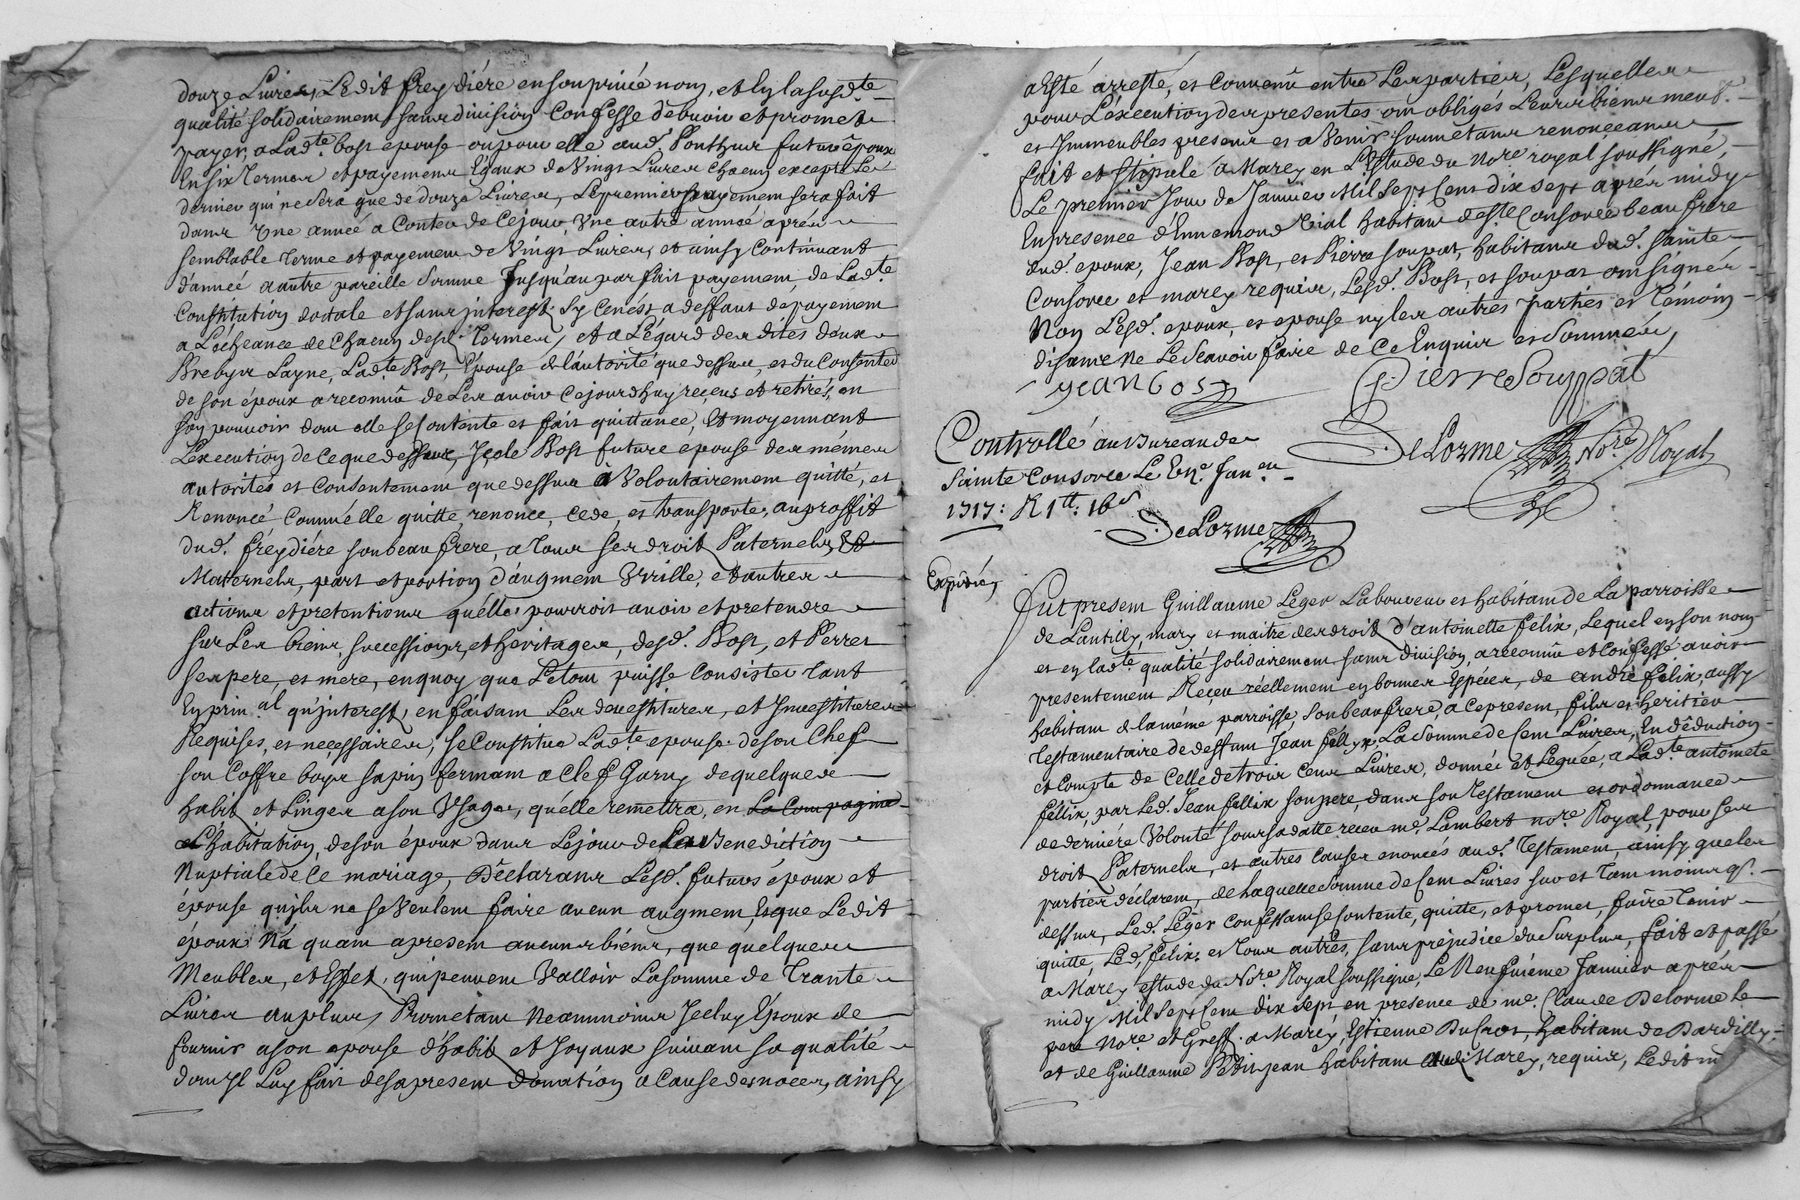 douze Livres, Ledit freydiére en son privé nom, et en lasusd.te
qualité solidairement sans division Confesse debvoir et promet
payer, a Lad.te bost épouse ou pour elle aud. Ponthus futur époux
En six Termes et payemens Egaux de Vingt Livres chacun excepté Le
dernier qui ne sera que de douze Livres, Le premier payement sera fait
dans Une année a Conter de Cejour, Une autre année aprés
semblable Terme et payement de Vingt Livres, et ainsy Continuant
d'année a autre pareille Somme Jusqu'au parfait payement, de Lad.te
Constitution dottale et sans jnterest. Sy Cenést a deffaut de payement
a Léchéance de Chacun desd. Termes, et a Légard des dites deux
Brebys Layne, Lad.te Bost, Épouse de l'autorité que dessus, et du Consentem.t
de son époux a reconnû de Les avoir Cejourdhuy receus et retirés, en
son pouvoir dont elle se Contente et fait quittance, Et moyennant
Lexecution de Ce que dessus, Icele Bost future épouse des mémes
autorités et Consentement que dessus à Volontairement quitté, et
Renoncé Comme elle quitte, renonce, Cede, et transporte, au proffit
dud. fréydiére son beaufrere, a Tous ses droits Paternels, Et
Maternels, part et portion d'augment Virille, et autres
actions et pretentions quélle pourroit avoir et pretendre
sur Les biens, successions, et heritages, desd. Bost, et Perret
ses pere, et mere, en quoy que Letout puisse Consister Tant
En prin.al qu'jnterest, en faisant Les devestitures, et Jnvestitures
Requises, et necessaires, se Constitue Lad.te epouse de son Chef
son Coffre boys sapin fermant a Clef Garny de quelques
habits et Linges a son Usage, qu'élle remettra, en La Compagnie
et habitation, de son époux dans Lejour de La Benediction
Nuptiale de Ce mariage, Déclarans Lesd. futurs époux et
épouse qu'jls ne se Veulent faire aucun augment, Esque Ledit
époux Na quant apresent aucuns biens, que quelques
Meubles, et Effets, qui peuvent Valloir Lasomme de Trante
Livres au plus, Prometant Neanmoins Jceluy Époux de
fournir a son epouse d'habits et Joyaux suivant sa qualité
dont Jl Luy fait des apresent donation a Cause de noces, ainsy
a Esté arresté, et Convenû entre Les parties, Lesquelles
pour L'éxécution des presentes ont obligés Leurs biens meub.
et Immeubles presens et a Venir soumetans renonceans
fait et stipulé a Marcy en L'Estude du No.re royal soussigné,
Le premier Jour de Janvier Mil Sept Cens dix sept aprés midy
En presence d'Ennemond Vial habitant de Ste Consorce beaufrere
dud. epoux, Jean Bost, et Pierre soupat, habitans dud. Sainte
Consorce et marcy requis, Lesd. Bost, et soupat ont signés
Non Lesd. epoux, et epouse ny les autres parties et Témoin
disant ne Le Scavoir faire de Ce Enquis et Sommés,
jean bost Pierre Souppat
De Lorme No.re Royal
Controllé au Bureau de
Sainte Consorce Le Janer
1717: R 1tt: 16s
DeLorme
Expédié,
Fut present Guillaume Leger Laboureur et habitant de La parroisse
de Lantilly, mary et maitre des droits d'antoinette felix, Lequel en son nom
et en lad.te qualité solidairement sans division, a reconnû et Conféssé avoir
presentement Reçeu réellement en bonnes Espéces, de andré félix, aussy
habitant de laméme parroisse, son beaufrere, a Ce present, fils et heritier
Testamentaire de deffunt Jean fellix, La Somme de Cent Livres, En déduction
et Compte de Celle de trois Cens Livres, donnée et Léguée, a Lad.te antoinete
félix, par Led. Jean fellix son pere, dans son Testament et ordonnance
de derniére Volonté sous sa datte receu me. Lambert no.re Royal, pour ses
droits Paternels, et autres Causes enoncés aud. Testament, ainsy que les
parties déclarent, de Laquelle Somme de Cent Livres sur et Tant moins q.
dessus, Led. Léger Confessant se Contente, quitte, et promet, faire Tenir
quitte, Led. félix, et Tous autres, sans préjudice du Surplus, fait et passé
a Marcy estude du No.re Royal soussigné, Le Neufviéme Janvier aprés
midy Mil Sept Cent dix sept en presence de me. Claude Delorme Le
pere No.re et Greff. a Marcy, Estienne DuCros, habitant de Dardilly,
et de Guillaume Petitjean habitant aud. Marcy, requis, Ledit